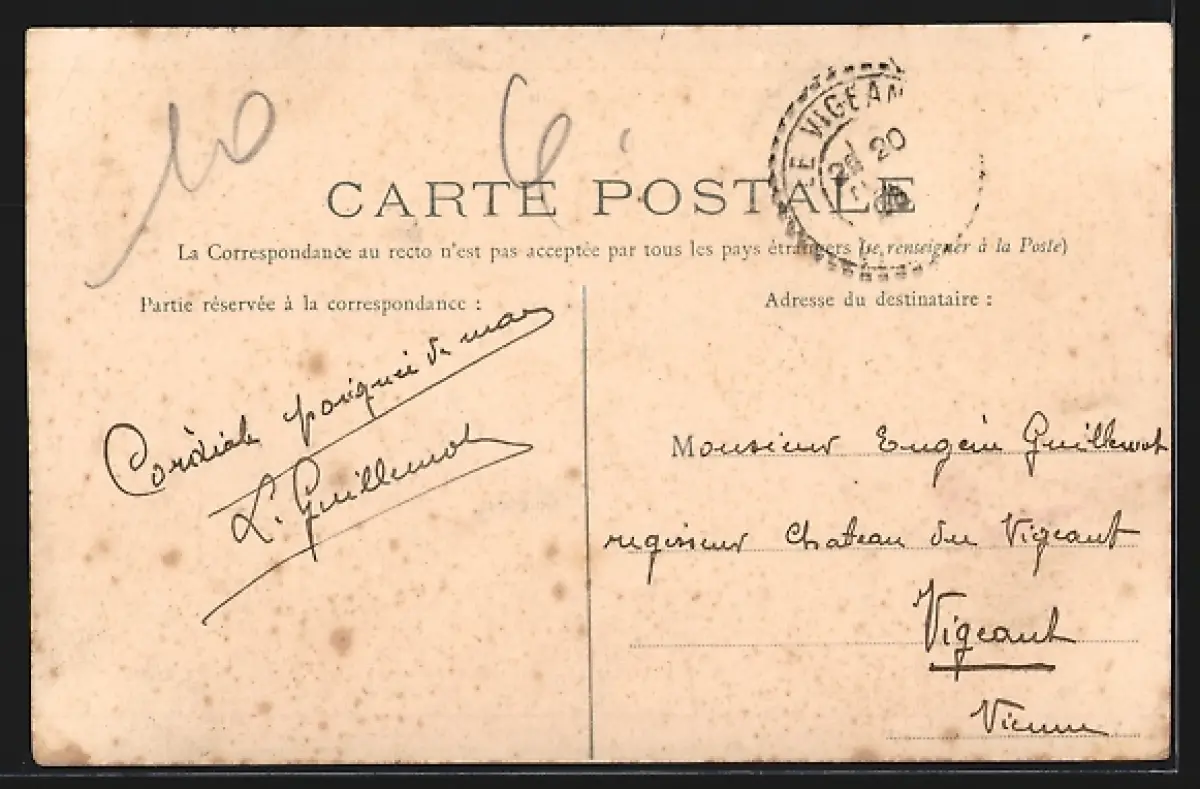 10
6
LE VIGEAN
20
CARTE POSTALE
La Correspondance au recto n'est pas acceptée par tous les pays étrangers (se renseigner à la Poste)
Partie réservée à la correspondance :
Adresse du destinataire :
Cordiale poignée de main
L. Guillemot
Monsieur Eugein Guillemot
regisseur Chateau du Vigeant
Vigeant
Vienne